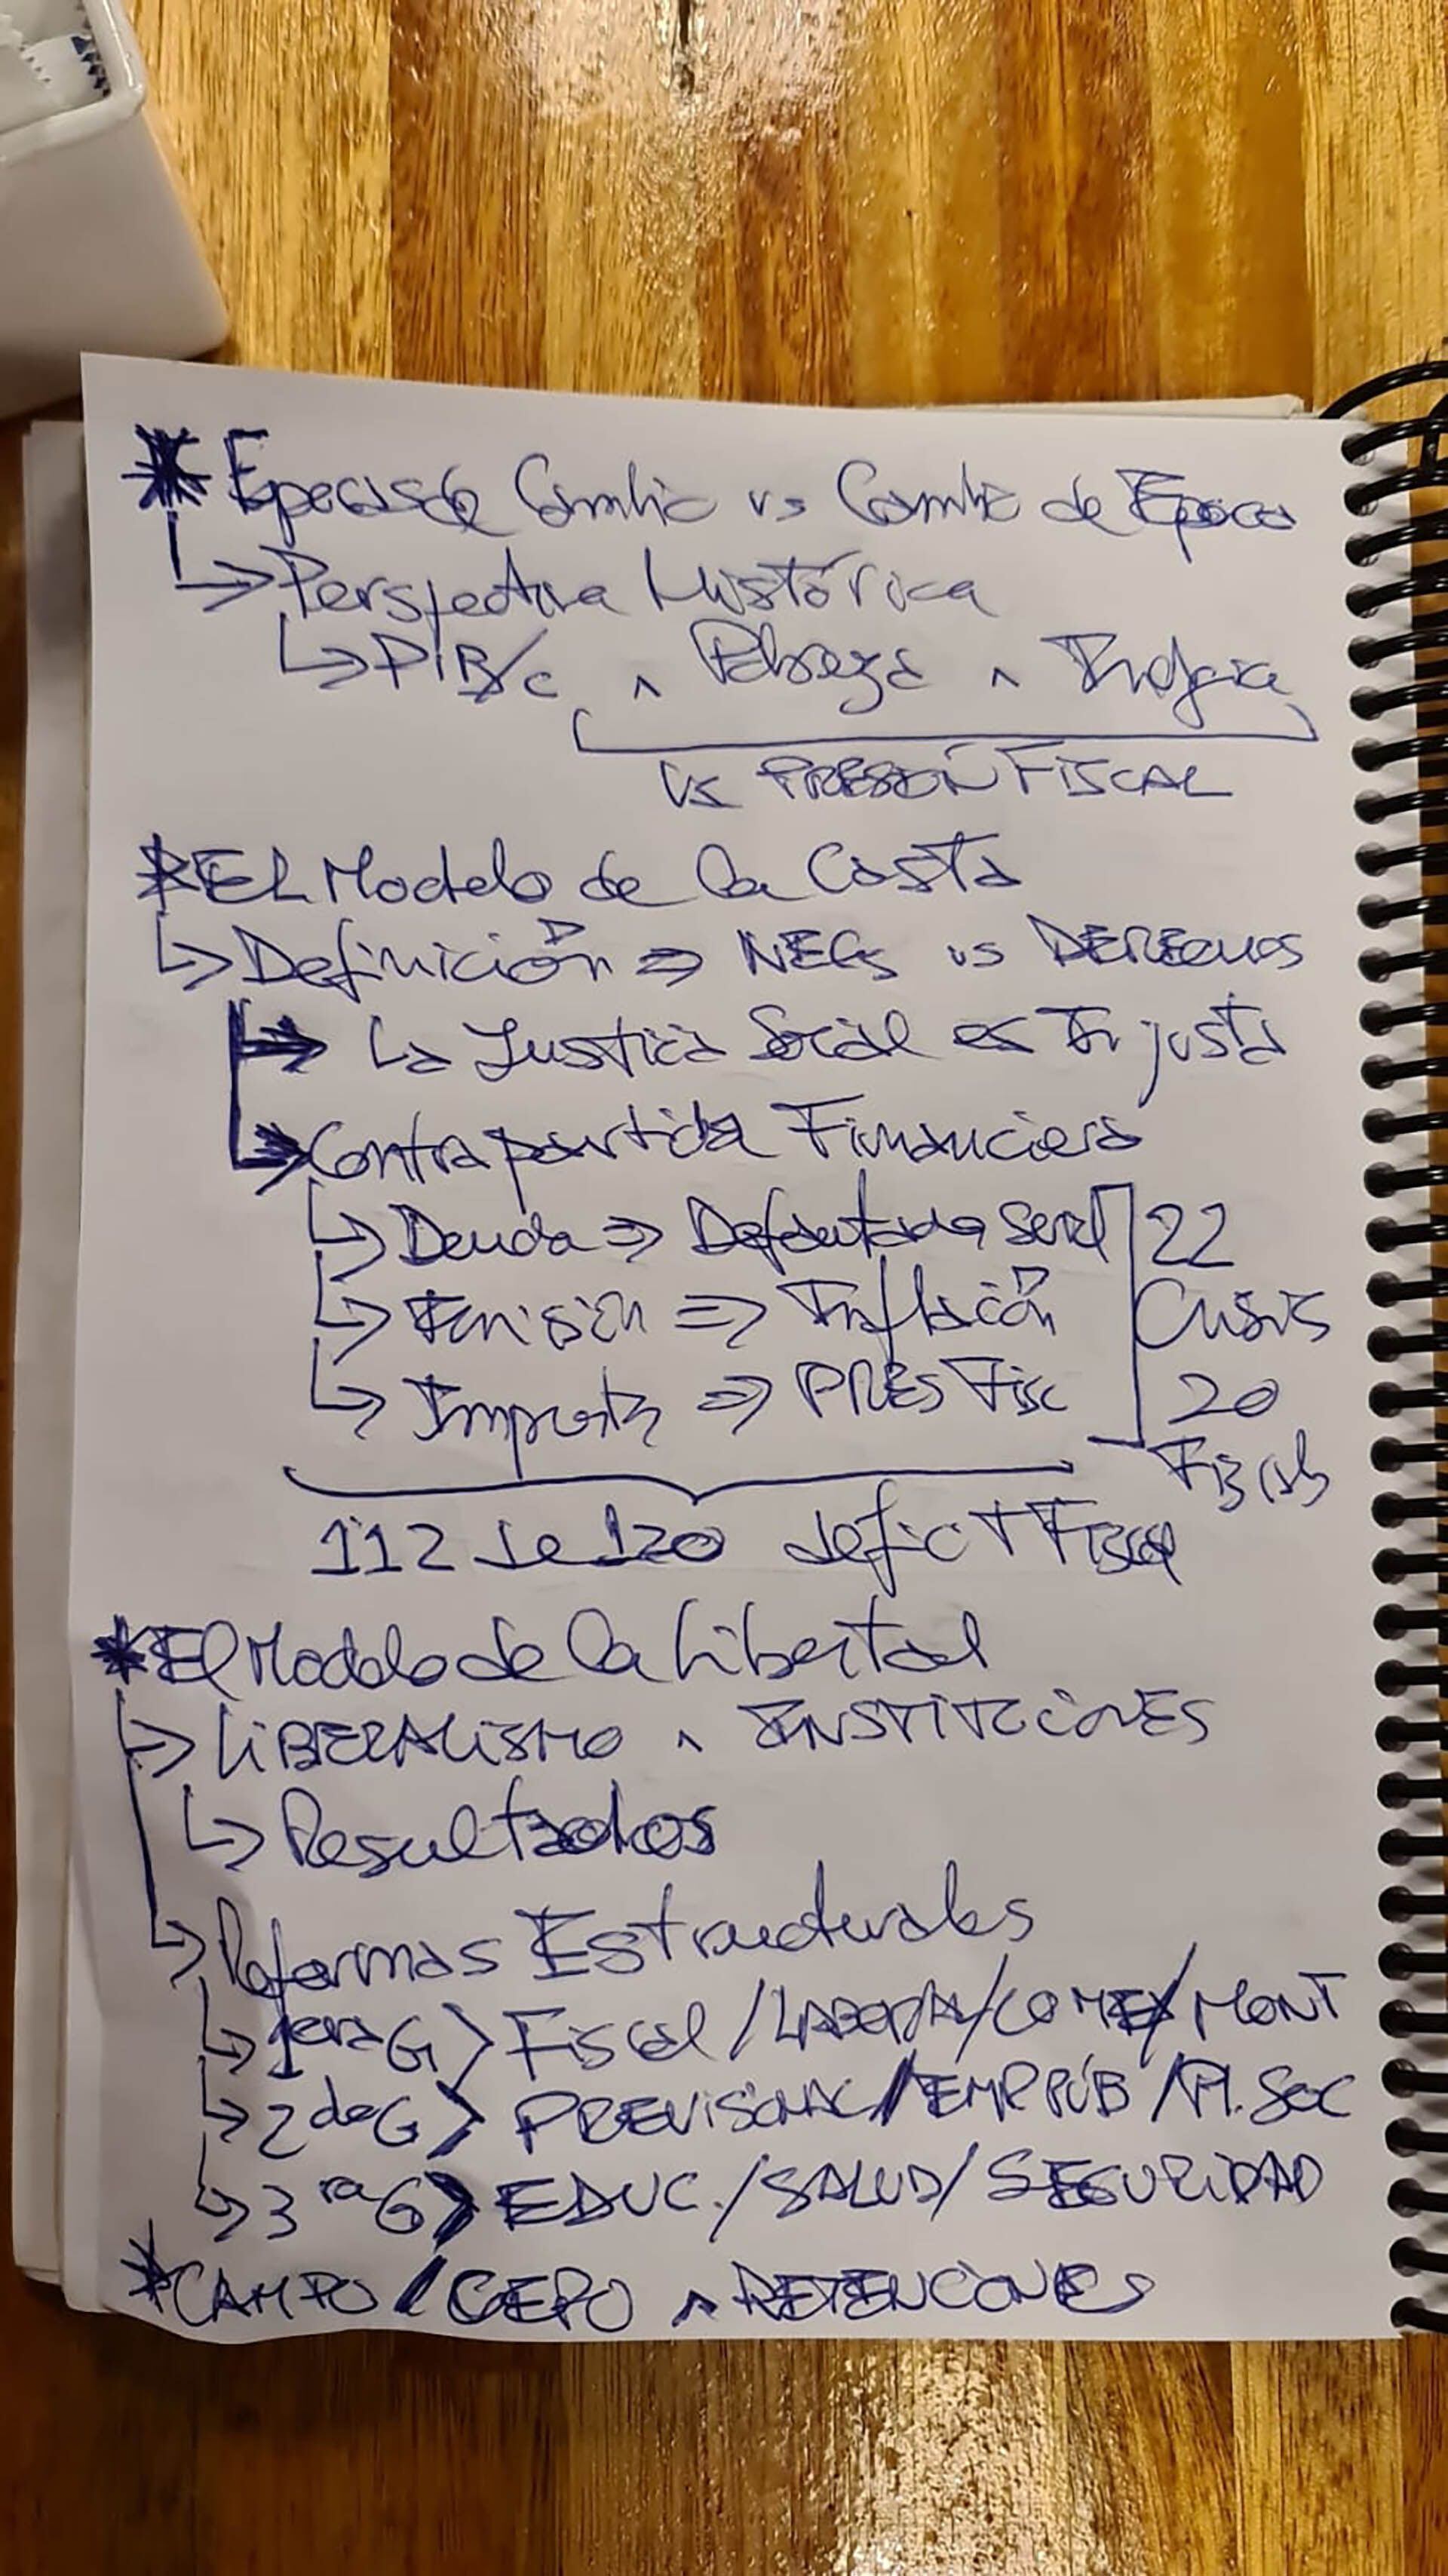 * Epocas de Cambio vs Cambio de Epoca
↳ Perspectiva Histórica
↳ PIB/c ^ Pobreza ^ Indigencia
vs PRESIÓN FISCAL
* EL Modelo de la Casta
↳ Definición ⇒ NECs vs DERECHOS
→ La Justicia Social es Injusta
↳ Contrapartida Financiera
↳ Deuda ⇒ Defaulteador Serial
↳ Emisión ⇒ Inflación
↳ Impuestos ⇒ PRES Fisc
22
Crisis
20
Fiscales
112 de 120 deficit Fiscal
* El Modelo de la Libertad
↳ LIBERALISMO ^ INSTITUCIONES
↳ Resultados
↳ Reformas Estructurales
↳ 1era G > Fiscal / LABORAL / COMEX / MONT
↳ 2da G > PREVISIONAL / EMP PÚB / Pl. SOC
↳ 3ra G > EDUC. / SALUD / SEGURIDAD
* CAMPO / CEPO ^ RETENCIONES